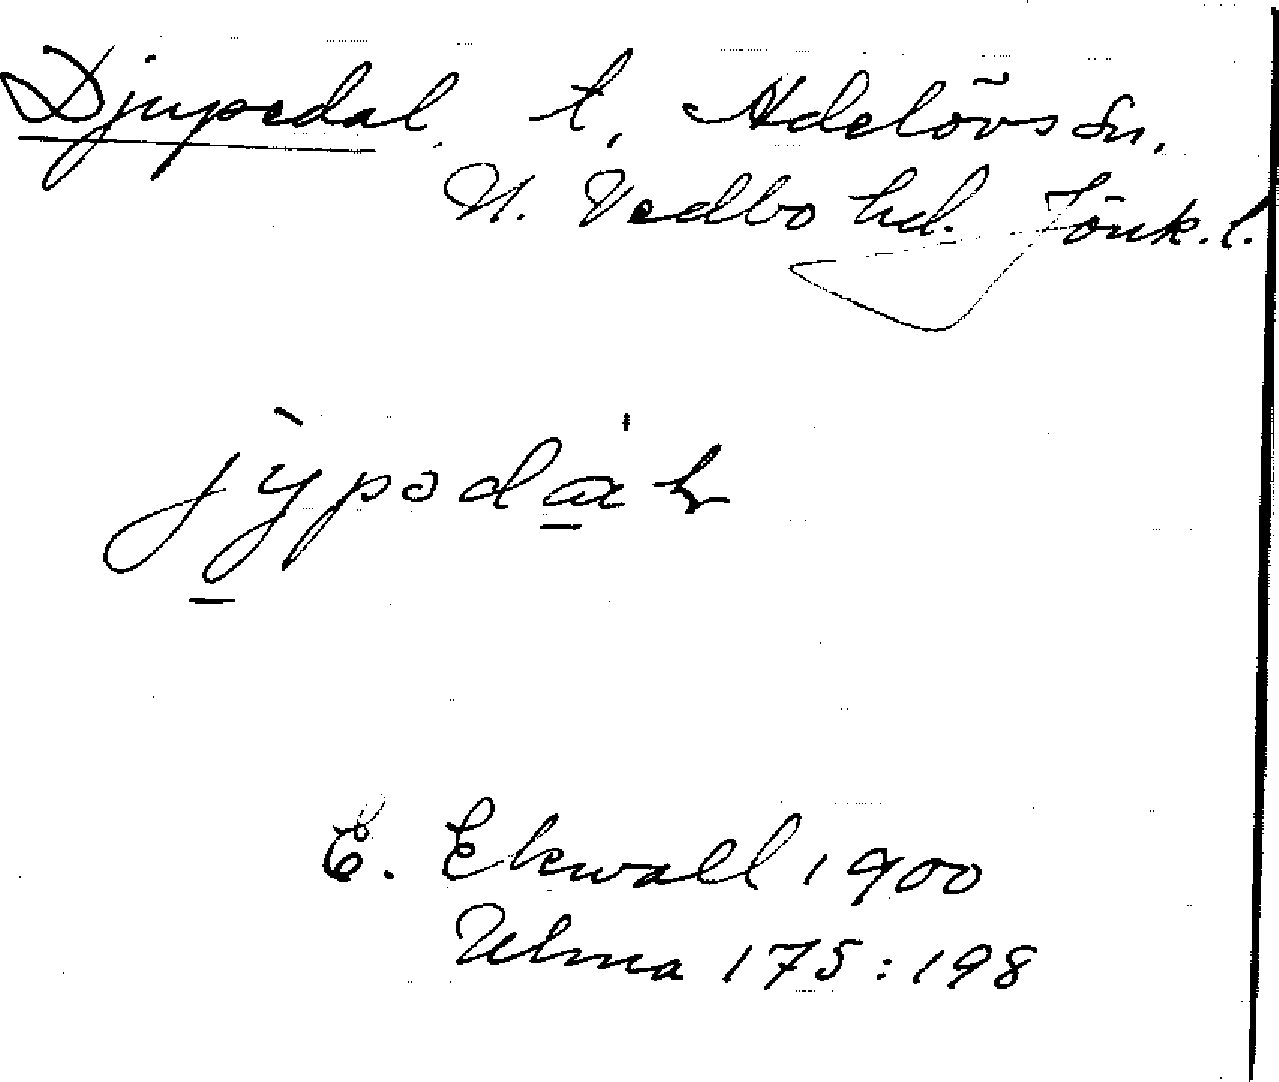 Djupedal, t, Adelövs sn,
N. Vedbo hd. Jönk. l.
jỳ̲pəda̲ˈɫ
E. Ekwall 1900
Ulma 175:198